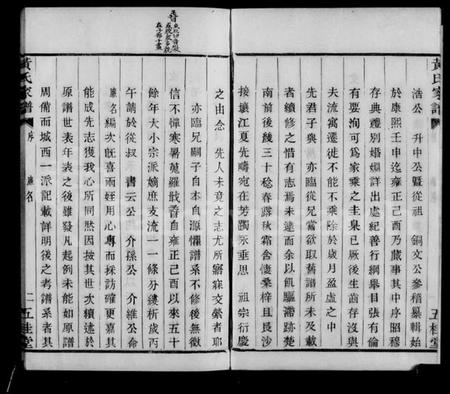 黃氏家譜
浩公 升中公暨從祖 銅文公參稽纂輯始
於康熙壬申迄雍正己酉乃蕆事其中序昭穆
存典禮別婚姻詳出處紀善行綱舉目張有倫
有要洵可為家乘之圭臬已厥後生齒存沒與
夫流寓遷徙不能不殘於歲月盈虛之中
先君子與 亦臨從兄嘗欲取舊譜所未及中
者續修之惜有志焉未逮而余以飢驅滯跡楚
南前後幾三十稔春露秋霜含悽桑梓且艮湖
接壤江夏先疇宛在芳躅示垂思 祖宗衍慶
之由念 先人未竟之志尤所寤寐交縈者耶
亦臨兄嗣子自本自源懼譜系不修後無徵
信不憚寒暑蒐羅散香自雍正己酉以來五十
餘年大小宗派嫡庶支流一一條分縷析歲丙
午請於從叔 書云公 介孫公 介維公命
名編次旣喜而姪用心專而採訪確更嘉其
能成先志獲我心所同然因按其世次續述於
原譜世表年表之後雖發凡起例未能如原譜
周備而城西一派記載詳明後之考譜系者其
黃氏家譜
序
名
二
五桂堂
五桂堂